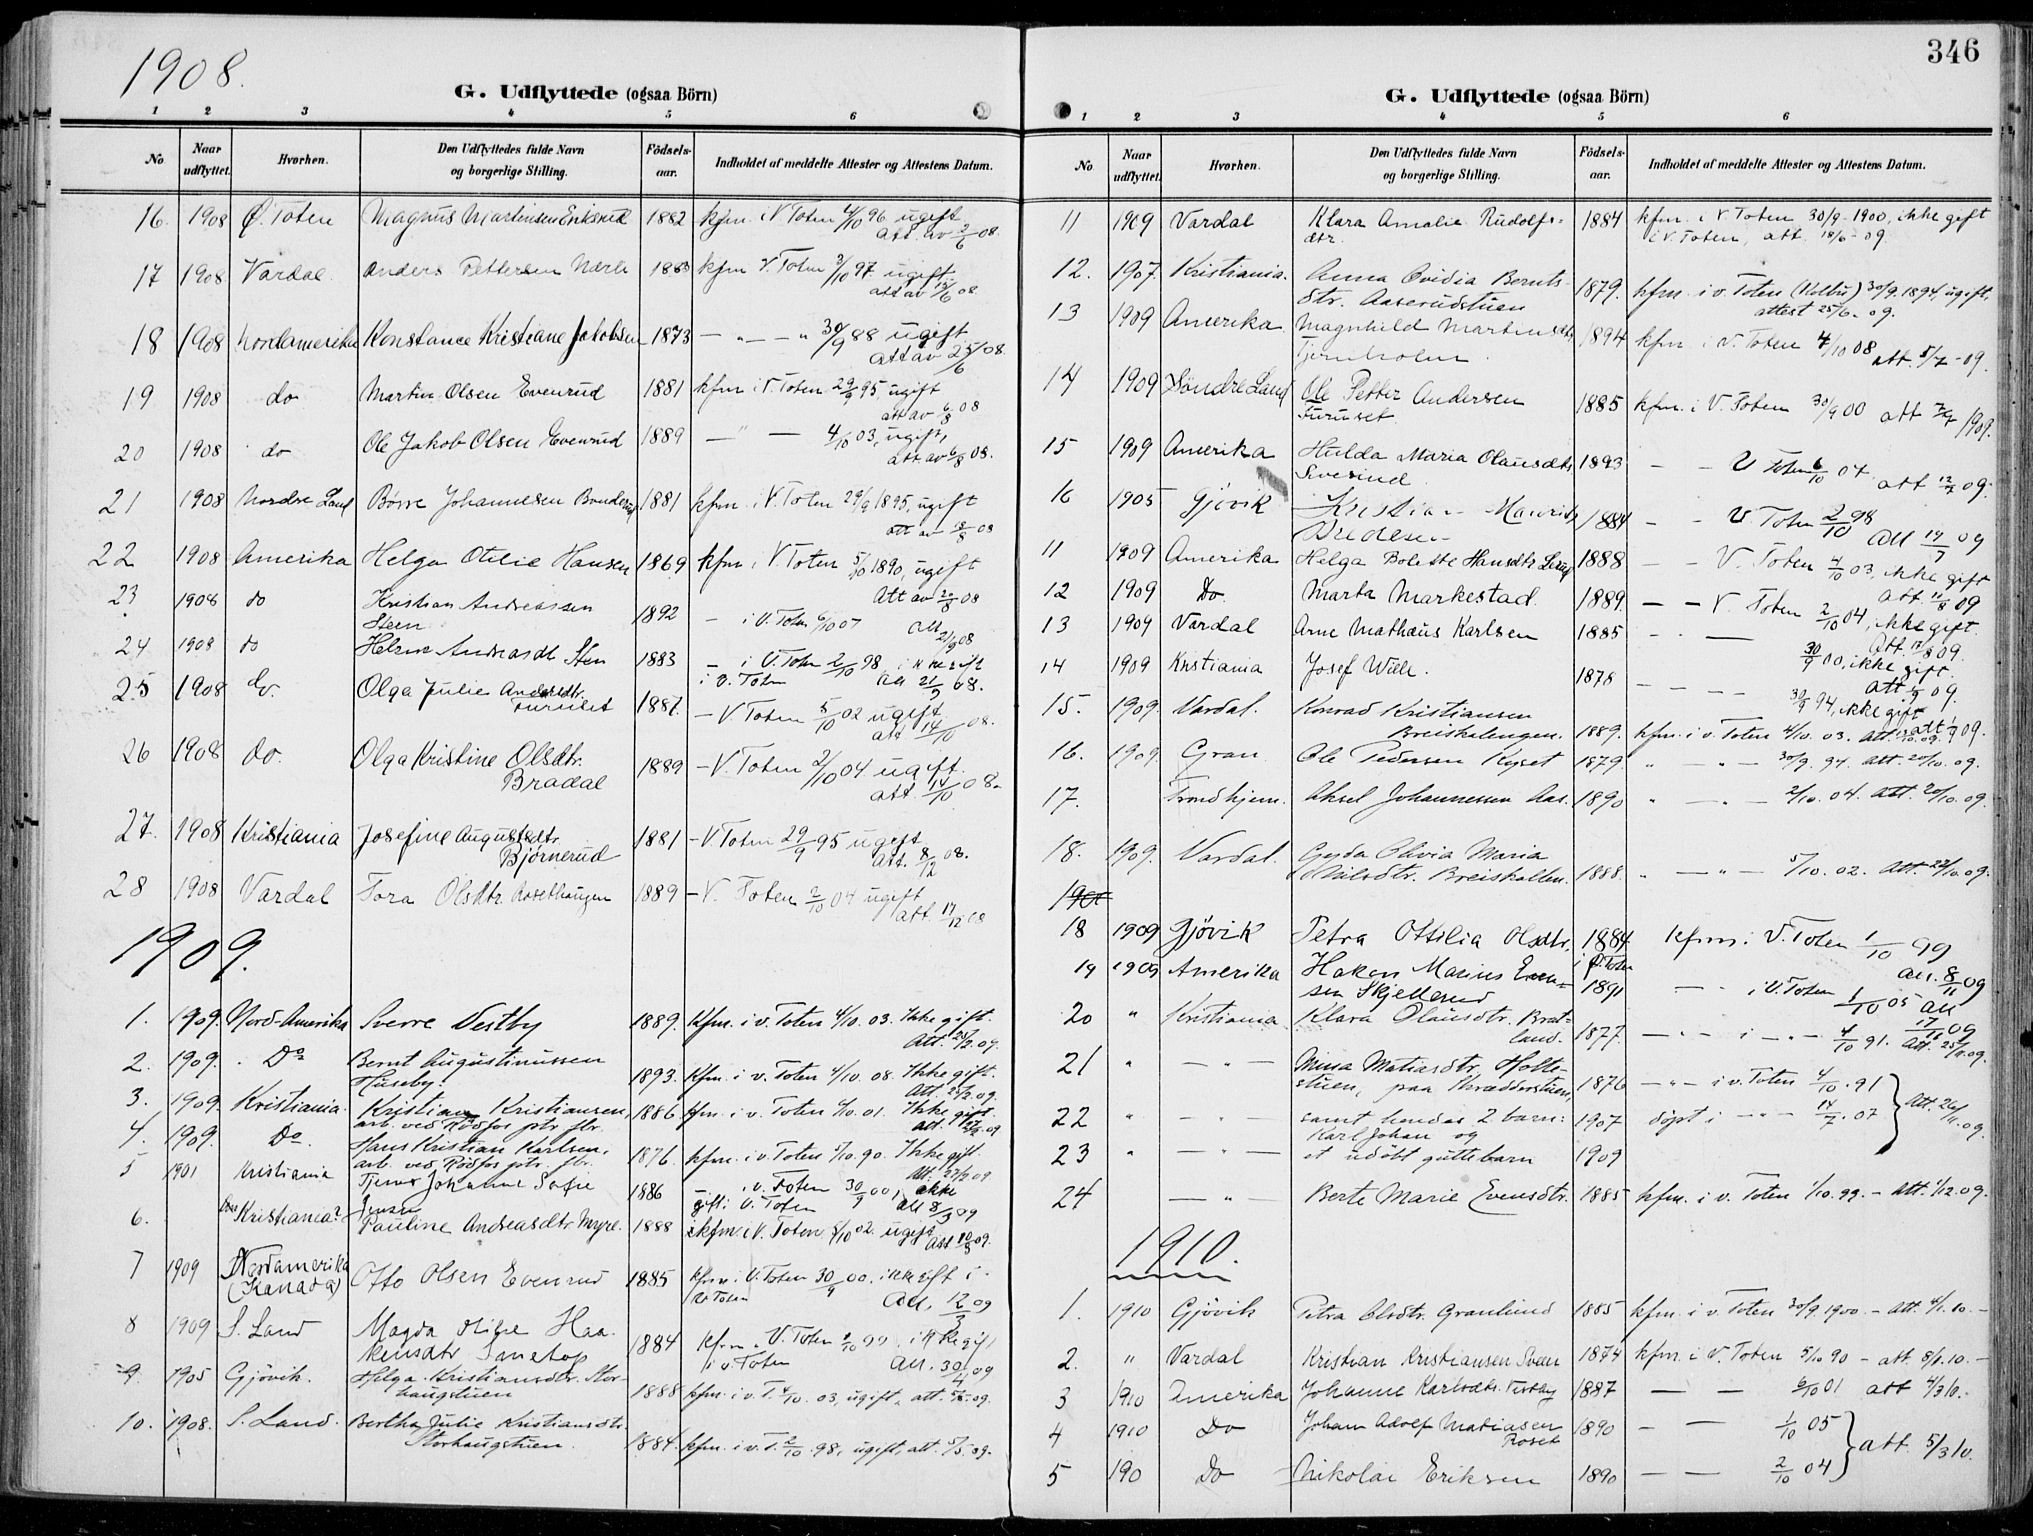 1908.
G. Udflyttede (ogsaa Börn)
1 2 3 4 5 6
No Naar udflyttet. Hvorhen. Den Udflyttedes fulde Navn og borgerlige Stilling. Födsels-aar. Indholdet af meddelte Attester og Attestens Datum.
16. 1908 Ø. Toten Magnus Martinsen Eriksrud 1882 kfm. i V Toten 4/10 96 ugift
att. av 2/6 08.
17 1908 Vardal Anders Pettersen 1883 kfm V. Toten 3/10 97 ugift
att av 08
18 1908 Nordamerika Konstance Kristiane Jakobsen 1873 — " — " 30/9 88 ugift
att av 25/6 08.
19 1908 do Martin Olsen Evenrud 1881 kfm i V. Toten 29/9 95, ugift
att av 6/8 08
20 1908 do Ole Jakob Olsen Evenrud 1889 — " — 4/10 03, ugift,
att av 6/8 08.
21 1908 Nordre Land Børre Johannesen 1881 kfm. i V. Toten 29/9 1895, ugift
att av 18/8 08
22 1908 Amerika Helga Otilie Hansen 1869 kfm i V. Toten 5/10 1890, ugift
Att av 2/8 08
23 1908 do Kristian Andreassen
Steen 1892 — i V. Toten 6/10 07
Att 21/9 08
24 1908 do Andreasdt. Sten 1883 — i V. Toten 2/10 98, ikke gift
i V. Toten Att 21/9 08.
25 1908 do. Olga Julie Andersdtr.
Furuset 1887. — V. Toten 5/10 02 ugift
att 14/10 08.
26 1908 do. Olga Kristine Olsdtr.
Bradal 1889 — V. Toten 2/10 04 ugift.
att 14/10 08.
27. 1908 Kristiania Josefine Augustsdtr.
Bjørnerud 1881 — V Toten 29/9 95 ugift
Att. 8/12 08.
28 1908 Vardal Tora Olsdtr. Rosethaugen 1889 — V. Toten 2/10 04 ugift
att 17/12 08
1909.
1. 1909. Nord-Amerika Sverre Vestby 1889. Kfm. i v. Toten 4/10. 03. Ikke gift.
Att. 25/2. 09.
2. 1909. Do Bernt Augustinussen
Huseby. 1893. Kfm. i v. Toten 4/10. 08. Ikke gift.
Att. 25/2. 09.
3. 1909. Kristiania. Kristian Kristiansen,
arb. ved Rødfos ptr. fbr. 1886 kfm. i v. Toten 6/10. 01. Ikke gift.
att. 27/2. 09
4. 1909. Do. Hans Kristian Karlsen,
arb. ved Rødfos ptr. fbr. 1876. kfm. i v. Toten 5/10. 90. Ikke gift.
Att. 27/2 09
5 1901 Kristiania Johanne Sofie
Jensen 1886 — i V. Toten 30/9 00, ikke
gift i V. Toten Att 8/3 09
6. Kristiania? Pauline Andreasdtr. Myre. 1888 kfm i V. Toten 5/10 02. ugift
Att 10/3 09.
7 1909 Nordamerika
(Kanada) Otto Olsen Evenrud 1885 kfm i V. Toten 30/9 00. ikke gift i
V. Toten Att. 12/3 09
8 1909 S. Land Magda Otilie Haa-
kensdtr 1884 kfm. V. Toten 1/10 99, ikke gift
i v Toten Att. 30/4 09
9 1905 Gjövik. Helga Kristiansdtr. Stor-
haugstuen 1888 kfm. i v. T. 4/10. 03, ugift, att. 09.
10. 1908. S. Land. Bertha Julie Kristiansdtr.
Storhaugstuen. 1884 kfm. i v. T. 2/10 98, ugift, att. 5/5. 09.
346
G. Udflyttede (ogsaa Börn)
1 2 3 4 5 6
No Naar udflyttet. Hvorhen. Den Udflyttedes fulde Navn og borgerlige Stilling. Födsels-aar. Indholdet af meddelte Attester og Attestens Datum.
11 1909 Vardal Klara Amalie Rudolfs-
dtr. 1884 kfm. i V. Toten 30/9 1900, ikke gift
i V. Toten, att. 18/6 - 09.
12. 1907. Kristiania. Anna Ovidia Bernts-
dtr. Aaserudstuen 1879. kfm. i v. Toten (Kolbu) 30/9. 1894, ugift.
attest 25/6. 09.
13 1909 Amerika. Magnhild Martinsdtr
Tjernholm. 1894 kfm. i V. Toten 4/10 08
att. 5/7 - 09.
14 1909 Søndre Land Ole Petter Andersen
Furuset 1885 kfm. i V. Toten 30/9 00 att 1909.
15 1909 Amerika Hulda Maria Olausdtr.
1893 — - V Toten 6/10 07.
att 12/7 09.
16 1905 Gjövik Kristian Mauritz
1884 — - V. Toten 2/10 98
Att 19/7 09
11 1909 Amerika Helga Bolette Hansdtr 1888 — - V. Toten 4/10 03, ikke gift
Att. 11/8 09
12 1909 Do. Marta Markestad. 1889. — - V. Toten 2/10 04, ikke gift.
Att. 17/8 09.
13 1909 Vardal Arne Mathäus Karlsen 1885 — - — 30/9 00, ikke gift.
Att 09.
14 1909 Kristiania Josef 1878 — - - - 30/9 94, ikke gift
att 09.
15. 1909. Vardal. Konrad Kristiansen
Breiskalengen. 1889. kfm. i v. Toten 4/10. 03. Att. 09.
16. 1909. Gran. Ole Pedersen Kyset 1879. " — " — 30/9. 94. Att. 20/10. 09.
17. Trondhjem. Aksel Johannessen Aas. 1890 " — " — 2/10. 04. Att. 20/10. 09.
18. 1909. Vardal. Gyda Olivia Maria
Nilsdtr. Breiskallen. 1888. " — " — 5/10. 02. Att. 22/10. 09.
18 1909 Gjövik Petra Ottilia Olsdtr. 1884 kfm. i V. Toten 1/10 99
i Ø. Toten Att. 8/11 09
19 1909 Amerika Hakon Marius Even-
sen Skjellerud 1891 — - i V. Toten 1/10 05 Att
17/11 09
20 " Kristiania Klara Olausdtr. Brat-
land. 1877. — " — i — " — 4/10 91. Att. 25/11. 09.
21 " — " — Mina Matiasdtr. Holte-
stuen, paa Skrædderstuen, 1876 — " — i v. Toten 4/10. 91
22 " — " — samt hendes 2 barn: 1907 døpt i — " — 14/7. 07 } Att. 26/11. 09.
Karl Johan og
23 " — " — et udöbt guttebarn 1909
24 — " — Berte Marie Evensdtr. 1885 kfm. i v. Toten 1/10. 99. — Att. 1/12. 09.
1910.
1. 1910 Gjövik Petra Olsdtr. Granlund 1885 kfm. i v. Toten 30/9. 1900. — Att. 4/1. 10. —
2. " Vardal Kristian Kristiansen Sveen 1874 kfm. i V. Toten 5/10 90 — att. 8/1. 10. —
3 1910 Amerika Johanne Karlsdtr. Vestby 1887 — — 6/10 01 att 4/3 10. -
4 1910 Do Johan Adolf Matiasen
Roset 1890 — — 1/10 05 } att. 5/3 10.
5 190 Do Nikolai Eriksen 1890 — — 2/10 04